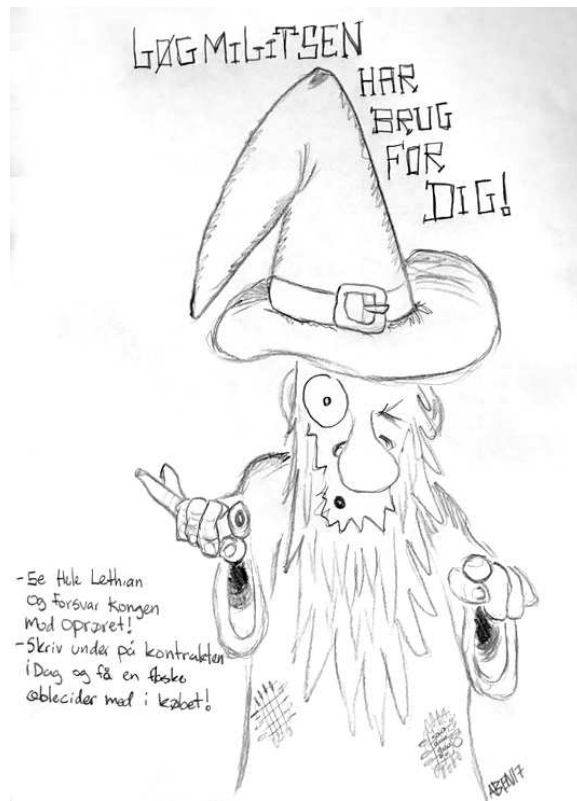 LØGMILITSEN
HAR
BRUG
FOR
DIG!
- Se Hele Lethian
og forsvar kongen
mod oprøret!
- Skriv under på kontrakten
i Dag og få en flaske
æblecider med i købet!